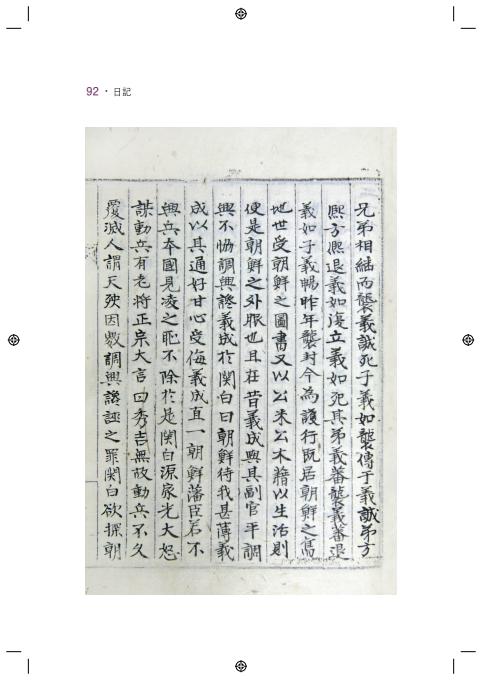 92 · 日記
兄弟相結而襲義誠死子義如襲傳于義誠弟方
熙方熙退義如復立義如死其弟義蕃襲義蕃退
義如子義暢昨年襲封今為護行既居朝鮮之馬
地世受朝鮮之圖書又以公米公木藉以生活則
便是朝鮮之外服也且在昔義成與其副官平調
興不恊調興譖義成於関白曰朝鮮待我甚薄義
成以其通好甘心受侮義成直一朝鮮藩臣若不
興兵本國見凌之恥不除於是関白源家光大怒
謀動兵有老將正宗大言曰秀吉無故動兵不久
覆滅人謂天殃因覈調興譖誣之罪関白欲探朝